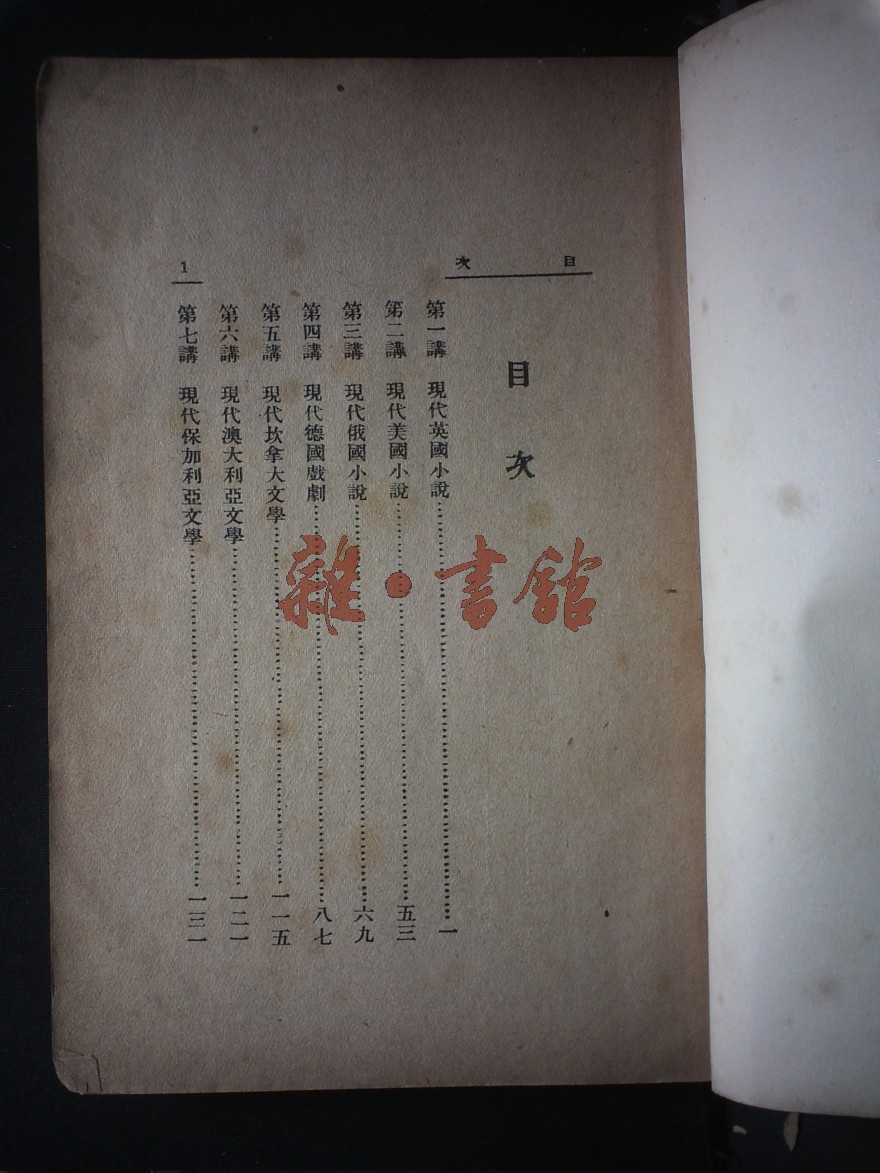 目次
1
目次
第一講 現代英國小說……一
第二講 現代美國小說……五三
第三講 現代俄國小說……六九
第四講 現代德國戲劇……八七
第五講 現代坎拿大文學……一一五
第六講 現代澳大利亞文學……一二一
第七講 現代保加利亞文學……一三一
雜·書館